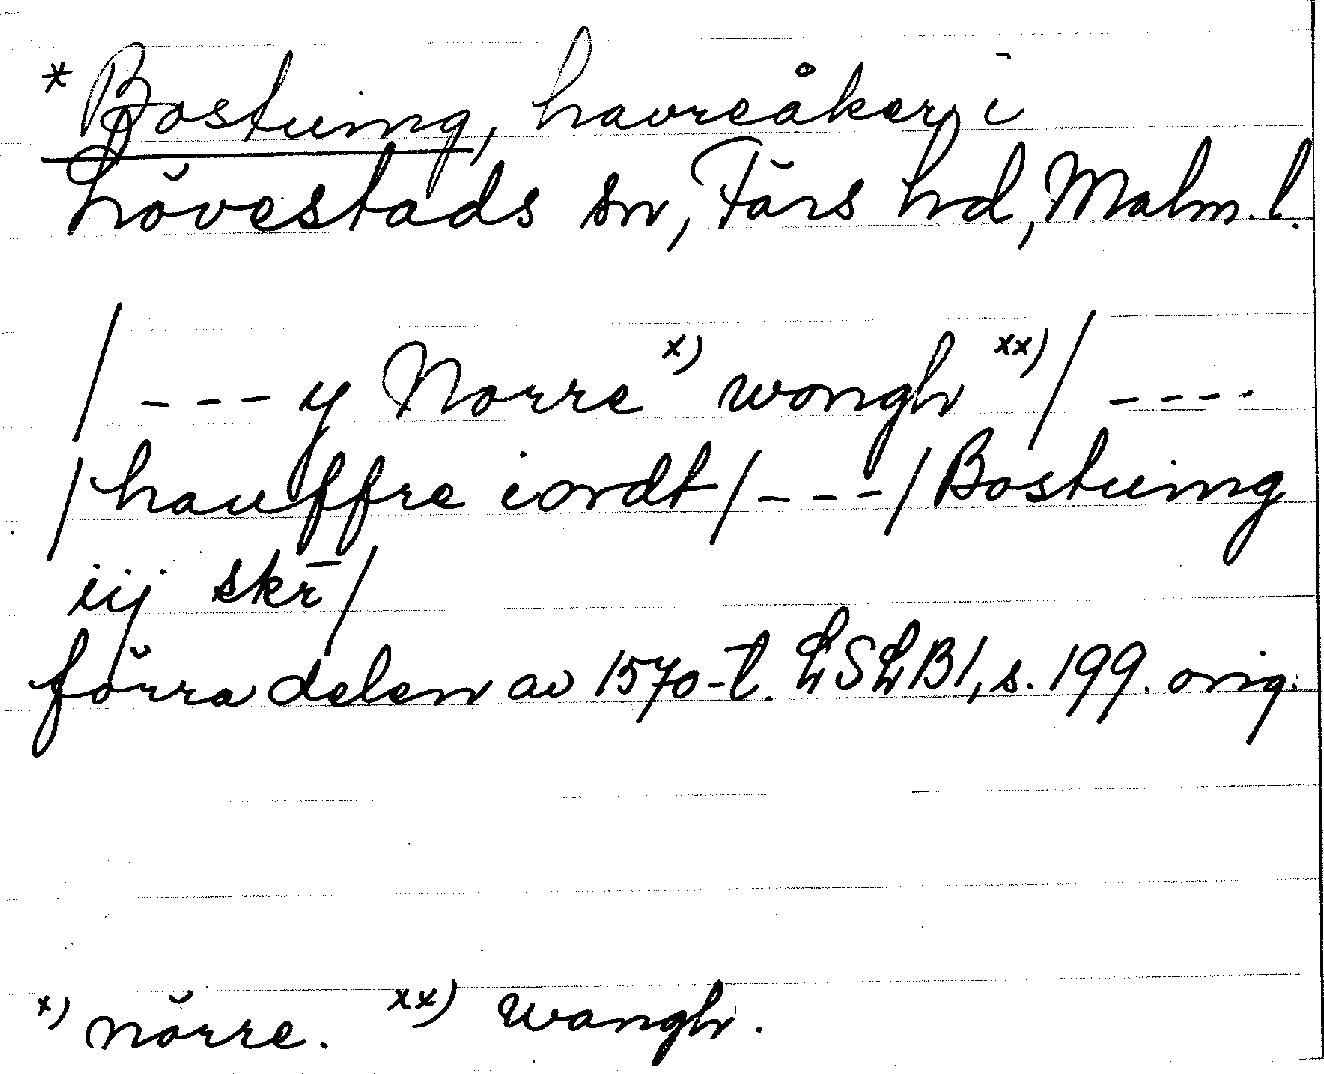 *Bostuing, havreåker, i
Lövestads sn, Färs hd, Malm. l.
/ --- y Norre x) wongh xx) / ----
/ hauffre iordt / --- / Bostuing
iij skr̄ /
förra delen av 1570-t. LSLB1, s. 199. orig.
x) nörre. xx) wangh.